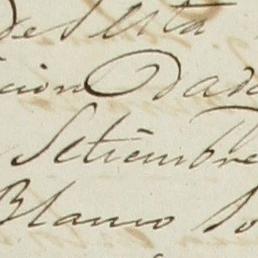 de esta
cion Dada
Setiembre
Blanco